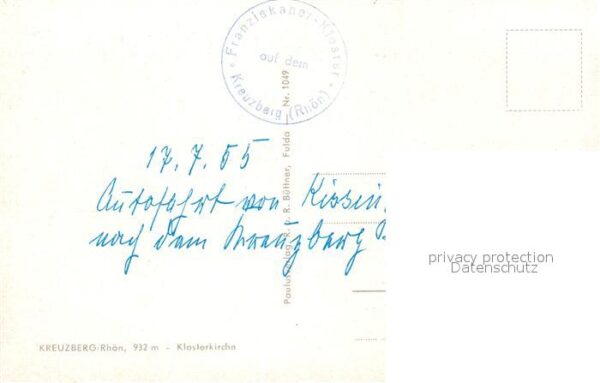 Franziskaner-Kloster
auf dem
Kreuzberg (Rhön)
17. 7. 55
Autofahrt von Kissin
nach dem Kreuzberg
Nr. 1049
R. Büttner, Fulda
KREUZBERG/Rhön, 932 m - Klosterkirche
privacy protection
Datenschutz